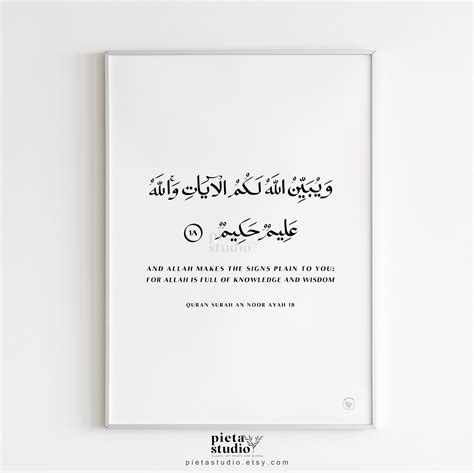 وَيُبَيِّنُ اللَّهُ لَكُمُ الْآيَاتِ وَاللَّهُ
عَلِيمٌ حَكِيمٌ ١٨
pieta
studio
AND ALLAH MAKES THE SIGNS PLAIN TO YOU:
FOR ALLAH IS FULL OF KNOWLEDGE AND WISDOM
QURAN SURAH AN NOOR AYAH 18
pieta
studio
pietastudio.etsy.com